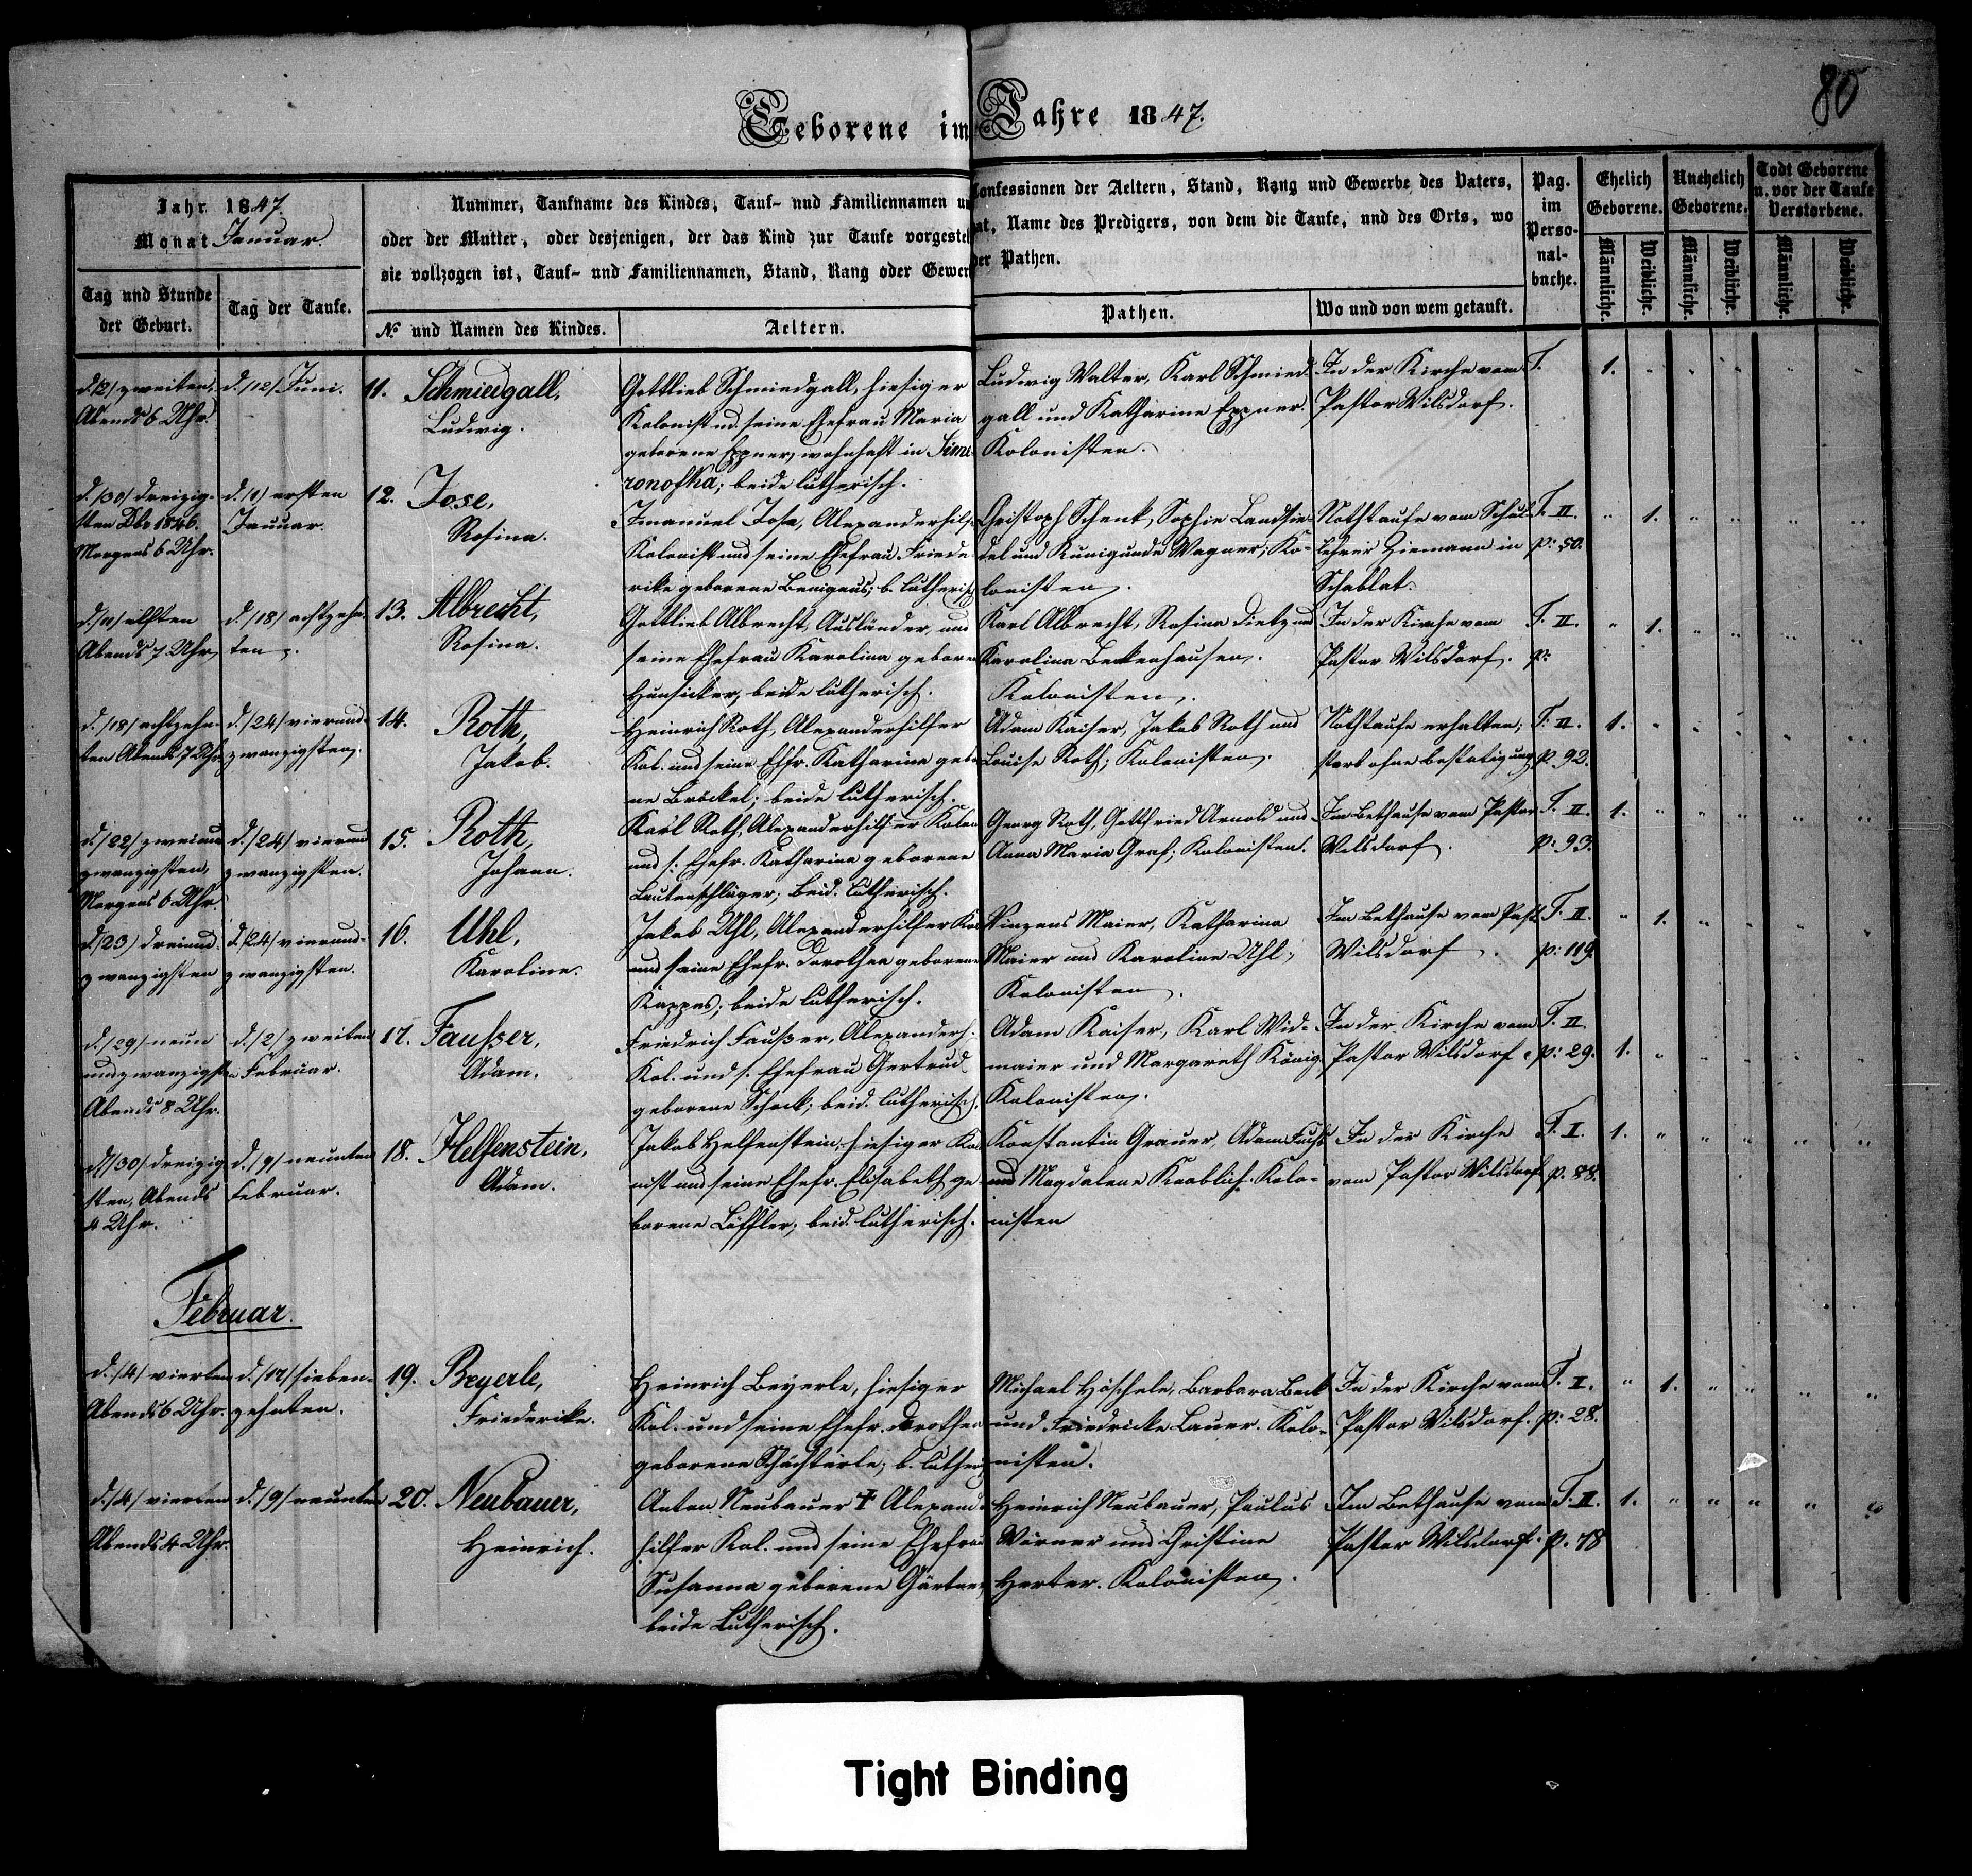 80
Geborene im Jahre 1847.
Jahr 1847.
Monat Januar.
Tag und Stunde der Geburt.
Tag der Taufe.
Nummer, Taufname des Kindes, Tauf- und Familiennamen
oder der Mutter, oder desjenigen, der das Kind zur Taufe vorgestel
sie vollzogen ist, Tauf- und Familiennamen, Stand, Rang oder Gewer
№ und Namen des Kindes.
Aeltern.
Confessionen der Aeltern, Stand, Rang und Gewerbe des Vaters,
at, Name des Predigers, von dem die Taufe, und des Orts, wo
der Pathen.
Pathen.
Wo und von wem getauft.
Pag. im Perso-nal-buche.
Ehelich Geborene.
Unehelich Geborene.
Todt Geborene u. vor der Taufe Verstorbene.
Männliche. Weibliche. Männliche. Weibliche. Männliche. Weibliche.
d. /2/ zweiten,
Abends 6 Uhr.
d. /12/ Juni.
11. Schmiedgall,
Ludwig.
Gottlieb Schmiedgall, hiesiger
Kolonist ud. seine Ehefrau Maria
geborene Eppner, wohnhaft in
ronofka; beide lutherisch.
Ludwig Walter, Karl Schmied-
gall und Katharine Eppner.
Kolonisten.
In der Kirche vom
Pastor Wilsdorf.
T.
1.
d. /30/ dreizig-
sten Dbr 1846.
Morgens 6 Uhr.
d. /1/ ersten
Januar.
12. Jose,
Rosina.
Imanuel Jose, Alexanderhilf.
Kolonist und seine Ehefrau Friede-
rike geborene Benignus; b. lutherisch
Christoph Schenk, Sophie Landsie-
del und Kunigunde Wagner; Ko-
lonisten.
Nothtaufe vom Schul-
lehrer Ziemann in
Schablat.
T. II.
p: 50.
1.
d. /11/ elften
Abends 7 Uhr
d. /18/ achtzehn-
ten.
13. Albrecht,
Rosina.
Gottlieb Albrecht, Ausländer, und
seine Ehefrau Karolina gebore
Hunsicker, beide lutherisch.
Karl Albrecht, Rosina Dietz und
Karolina Beckenhausen.
Kolonisten.
In der Kirche vom
Pastor Wilsdorf.
T. II.
p:
1.
d. /18/ achtzehn-
ten Abends 7 Uhr
d. /24/ vierund-
zwanzigsten.
14. Roth,
Jakob.
Heinrich Roth, Alexanderhilfer
Kol. und seine Ehfr. Katharina gebo
ne Bröckel; beide lutherisch.
Adam Kaiser, Jakob Roth und
Louise Roth; Kolonisten.
Nothtaufe erhalten;
starb ohne Bestätigung
T. II.
p. 92.
1.
d. /22/ zweiund
zwanzigsten,
Morgens 6 Uhr.
d. /24/ vierund
zwanzigsten.
15. Roth,
Johann.
Karl Roth, Alexanderhilfer Kolon
und s. Ehefr. Katharina geborene
Lautenschläger; beid. lutherisch.
Georg Roth, Gottfried Arnold und
Anna Maria Graf; Kolonisten.
Im Bethause vom Pastor
Wilsdorf.
T. II.
p. 93.
1.
d. /23/ dreiund-
zwanzigsten
d. /24/ vierund-
zwanzigsten.
16. Uhl,
Karoline.
Jakob Uhl, Alexanderhilfer Kol
und seine Ehefr. Dorothea geborene
Kappes; beide lutherisch.
Vinzens Maier, Katharina
Maier und Karoline Uhl;
Kolonisten.
Im Bethause vom Past.
Wilsdorf.
T. II.
p: 119.
1.
d. /29/ neun
undzwanzigsten
Abends 8 Uhr.
d. /2/ zweiten
Februar.
17. Faußer,
Adam.
Friedrich Faußer, Alexanderh.
Kol. und s. Ehefrau Gertrud
geborene Schock; beid. lutherisch.
Adam Kaiser, Karl Wid-
maier und Margareth König,
Kolonisten.
In der Kirche vom
Pastor Wilsdorf.
T. II.
p: 29.
1.
d. /30/ dreizig
sten, Abends
4 Uhr.
d. /9/ neunten
Februar.
18. Helfenstein,
Adam.
Jakob Helfenstein, hiesiger Kolo
nist und seine Ehefr. Elisabeth ge-
borene Löffler; beid. lutherisch.
Konstantin Grauer, Adam Fuchs
und Magdalena Knoblich. Kolo-
nisten
In der Kirche
vom Pastor Wilsdorf
T. I.
p. 88.
1.
Februar.
d. /4/ vierten
Abends 6 Uhr.
d. /17/ sieben-
zehnten.
19. Beyerle,
Friederike.
Heinrich Beyerle, hiesiger
Kol. und seine Ehefr. Dorothea
geborene Schächterle; b. luther.
Michael Höschele, Barbara Beck
und Friedricke Lauer. Kolo-
nisten.
In der Kirche vom
Pastor Wilsdorf.
T. I.
p: 28.
1.
d. /4/ vierten
Abends 4 Uhr.
d. /9/ neunten
20. Neubauer,
Heinrich.
Anton Neubauer ‡ Alexand
hilfer Kol. und seine Ehefrau
Susanna geborene Gärtner,
beide Lutherisch.
Heinrich Neubauer, Paulus
Werner und Christine
Herter. Kolonisten.
Im Bethause vom
Pastor Wilsdorf.
T. II.
p. 78
1.
Tight Binding